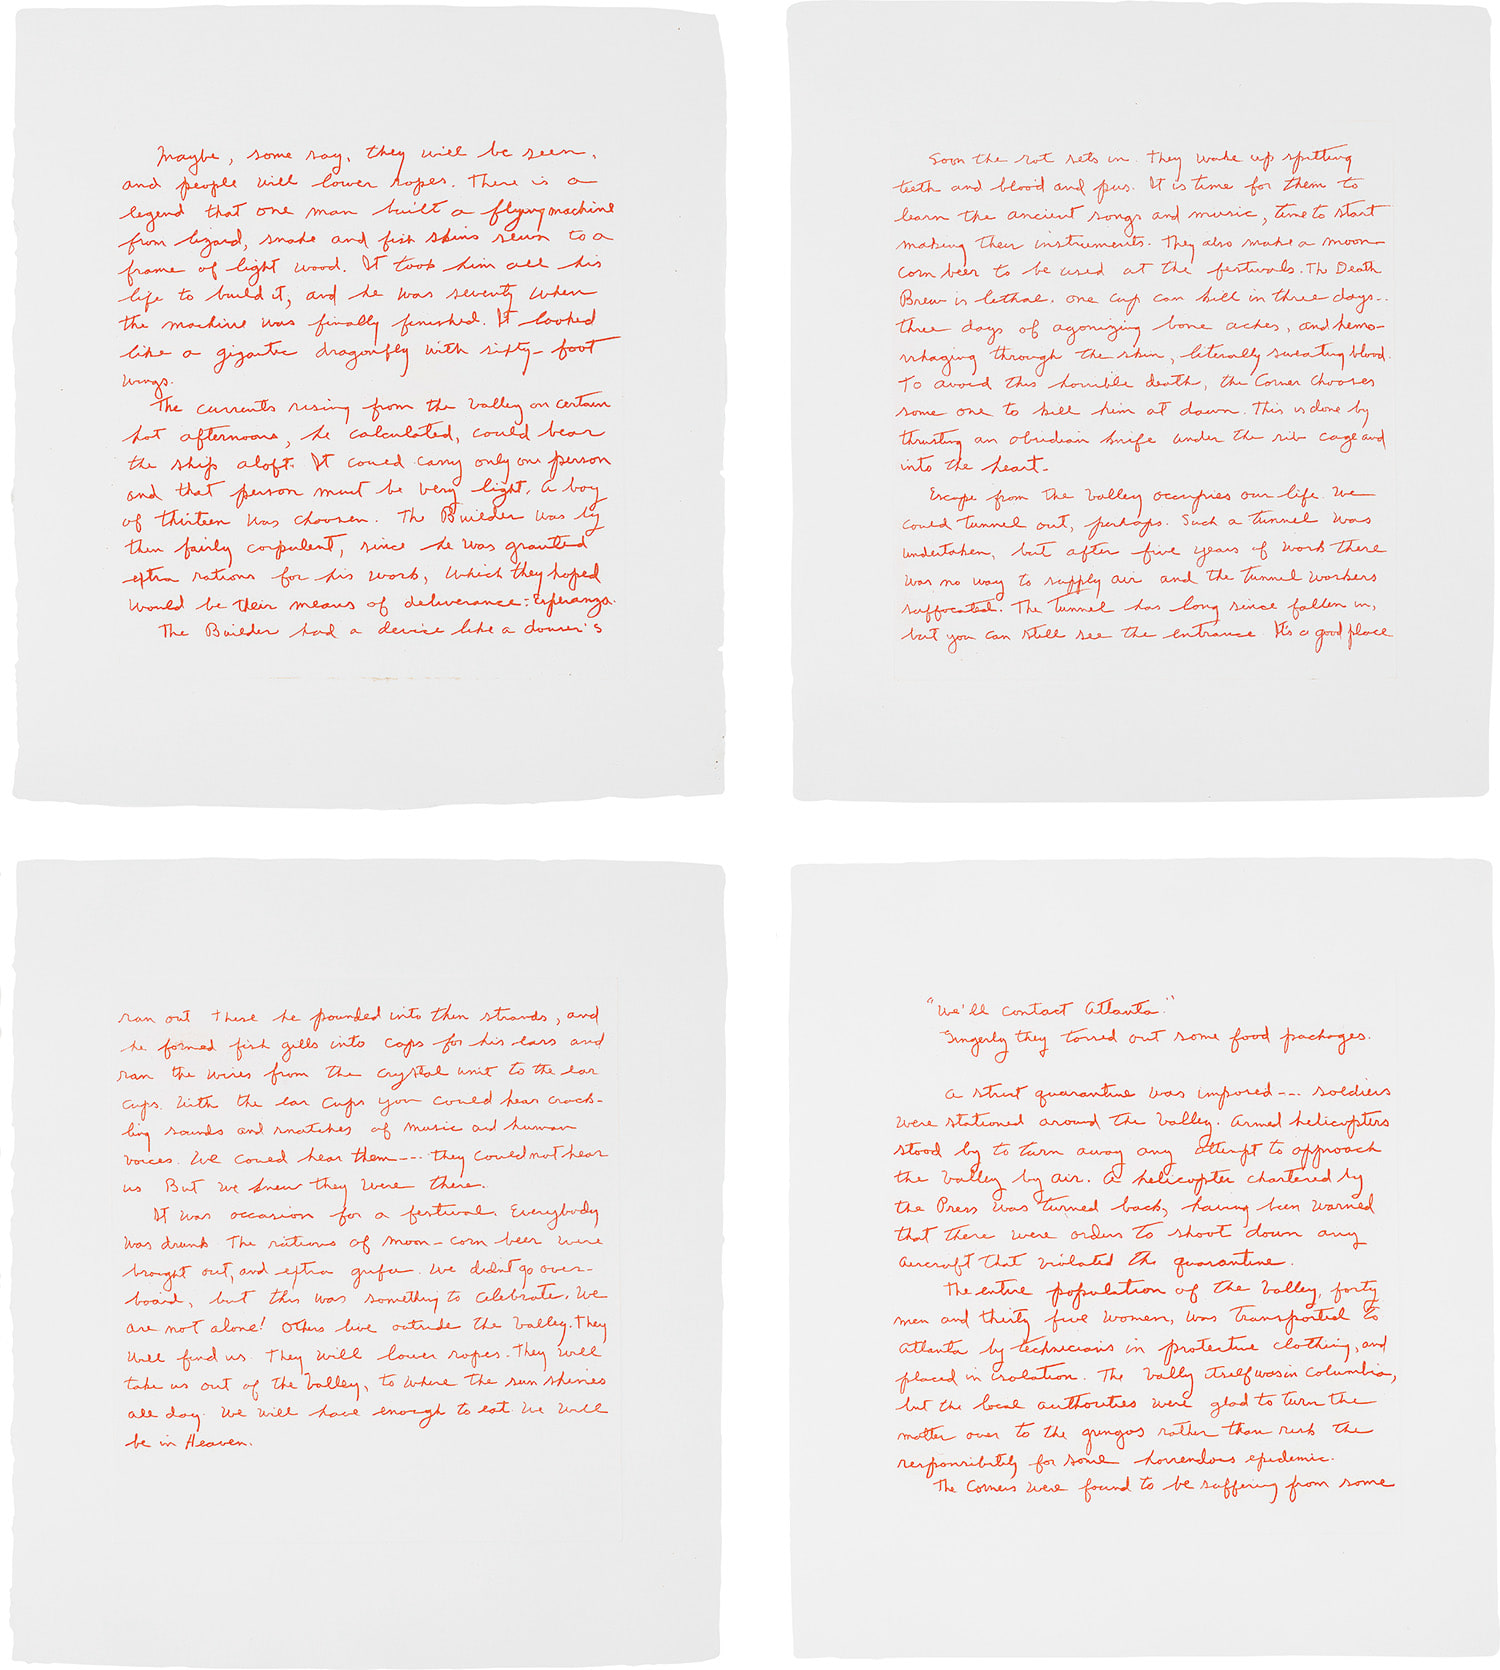 Maybe, some say, they will be seen,
and people will lower ropes. There is a
legend that one man built a flying machine
from lizard, snake and fish skins sewn to a
frame of light wood. It took him all his
life to build it, and he was seventy when
the machine was finally finished. It looked
like a gigantic dragonfly with sixty-foot
wings.
The currents rising from the valley on certain
hot afternoons, he calculated, could bear
the ship aloft. It could carry only one person
and that person must be very light. A boy
of thirteen was choosen. The Builder was by
then fairly corpulent, since he was granted
extra rations for his work, which they hoped
would be their means of deliverance: Esperanza.
The Builder had a device like a dowser's
Soon the rot sets in. They wake up spitting
teeth and blood and pus. It is time for them to
learn the ancient songs and music, time to start
making their instruments. They also make a moon-
corn beer to be used at the festivals. The Death
Brew is lethal. One cup can kill in three days--
three days of agonizing bone aches, and hemo-
rrhaging through the skin, literally sweating blood.
To avoid this horrible death, the Corner chooses
some one to kill him at dawn. This is done by
thrusting an obsidian knife under the rib cage and
into the heart.
Escape from the Valley occupies our life. We
could tunnel out, perhaps. Such a tunnel was
undertaken, but after five years of work there
was no way to supply air and the tunnel workers
suffocated. The tunnel has long since fallen in,
but you can still see the entrance. It's a good place
ran out these he pounded into thin strands, and
he formed fish gills into cups for his ears and
ran the wires from the crystal unit to the ear
cups. With the ear cups you could hear crack-
ling sounds and snatches of music and human
voices. We could hear them--- they could not hear
us But we knew they were there.
It was occasion for a festival. Everybody
was drunk The rations of moon-corn beer were
brought out, and extra grifa. We didn't go over-
board, but this was something to celebrate. We
are not alone! Others live outside the Valley. They
will find us. They will lower ropes. They will
take us out of the Valley, to where the sun shines
all day. We will have enough to eat. We will
be in Heaven.
"We'll contact Atlanta."
Gingerly they tossed out some food packages.
A strict quarantine was imposed--- soldiers
were stationed around the Valley. Armed helicopters
stood by to turn away any attempt to approach
the Valley by air. A helicopter chartered by
the Press was turned back, having been warned
that there were orders to shoot down any
aircraft that violated the quarantine.
The entire population of the Valley, forty
men and thirty five women, was transported to
Atlanta by technicians in protective clothing, and
placed in isolation. The Vally itself was in Columbia,
but the local authorities were glad to turn the
matter over to the gringos rather than risk the
responsibility for some horrendous epidemic.
The Corners were found to be suffering from some